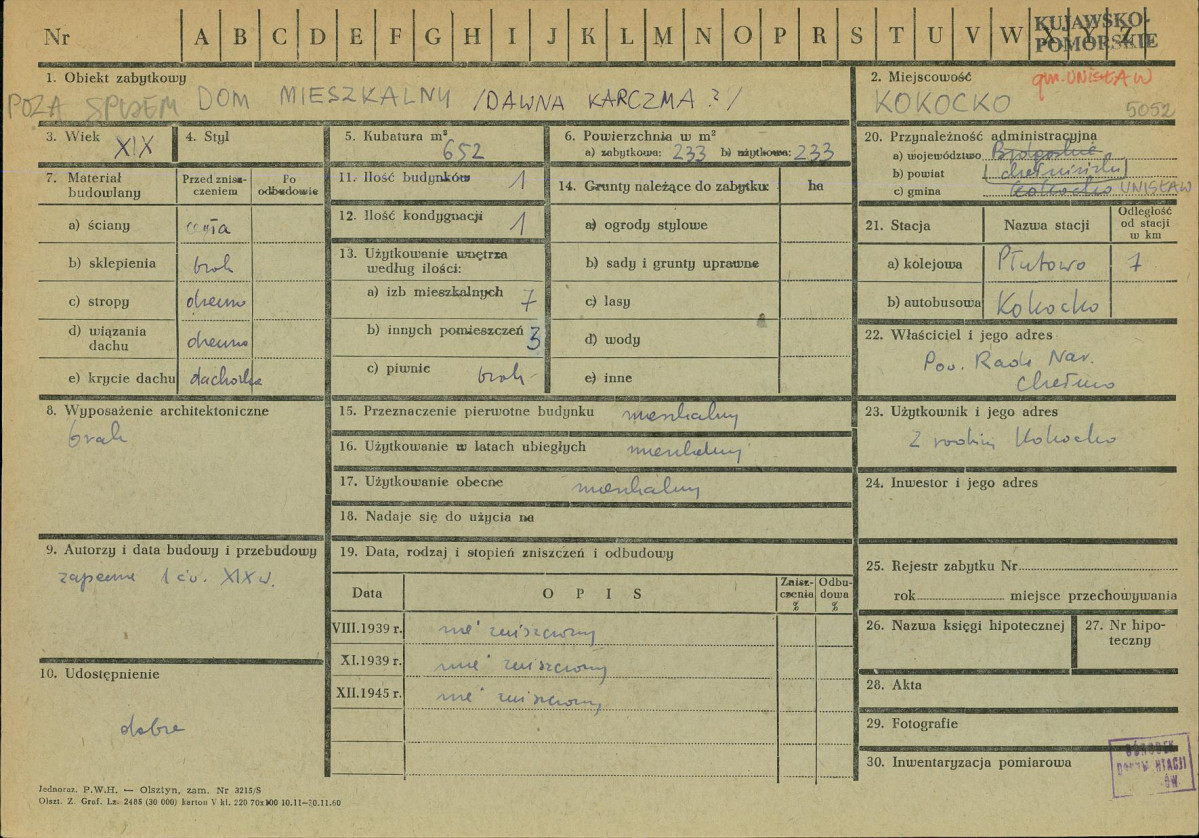 Nr A B C D E F G H I J K L M N O P R S T U V W X Y Z
KUJAWSKO-
POMORSKIE
1. Obiekt zabytkowy
POZA SPISEM DOM MIESZKALNY /DAWNA KARCZMA?/
2. Miejscowość gm. UNISŁAW
KOKOCKO 5052
3. Wiek XIX
4. Styl
5. Kubatura m³
652
6. Powierzchnia w m²
a) zabytkowa: 233 b) użytkowa: 233
20. Przynależność administracyjna
a) województwo Bydgoskie
b) powiat chełmiński
c) gmina Kokocko UNISŁAW
7. Materiał budowlany
Przed znisz-
czeniem
Po
odbudowie
a) ściany cegła
b) sklepienia brak
c) stropy drewno
d) wiązania
dachu drewno
e) krycie dachu dachówka
11. Ilość budynków 1
12. Ilość kondygnacji 1
13. Użytkowanie wnętrza
według ilości:
a) izb mieszkalnych 7
b) innych pomieszczeń 3
c) piwnic brak
14. Grunty należące do zabytku ha
a) ogrody stylowe
b) sady i grunty uprawne
c) lasy
d) wody
e) inne
21. Stacja Nazwa stacji
Odległość
od stacji
w km
a) kolejowa Płutowo 7
b) autobusowa Kokocko
22. Właściciel i jego adres
Pow. Rada Nar.
Chełmno
8. Wyposażenie architektoniczne
brak
15. Przeznaczenie pierwotne budynku mieszkalny
16. Użytkowanie w latach ubiegłych mieszkalny
17. Użytkowanie obecne mieszkalny
18. Nadaje się do użycia na
23. Użytkownik i jego adres
2 rodziny Kokocko
24. Inwestor i jego adres
9. Autorzy i data budowy i przebudowy
zapewne 1 ćw. XIX w.
10. Udostępnienie
dobre
19. Data, rodzaj i stopień zniszczeń i odbudowy
Data OPIS
Znisz-
czenia
%
Odbu-
dowa
%
VIII.1939 r. nie zniszczony
XI.1939 r. nie zniszczony
XII.1945 r. nie zniszczony
25. Rejestr zabytku Nr
rok miejsce przechowywania
26. Nazwa księgi hipotecznej
27. Nr hipo-
teczny
28. Akta
29. Fotografie
30. Inwentaryzacja pomiarowa
OŚRODEK
Jednoraz. P.W.H. — Olsztyn, zam. Nr 3215/S
Olszt. Z. Graf. Lz. 2485 (30 000) karton V kl. 220 70x100 10.11—30.11.60